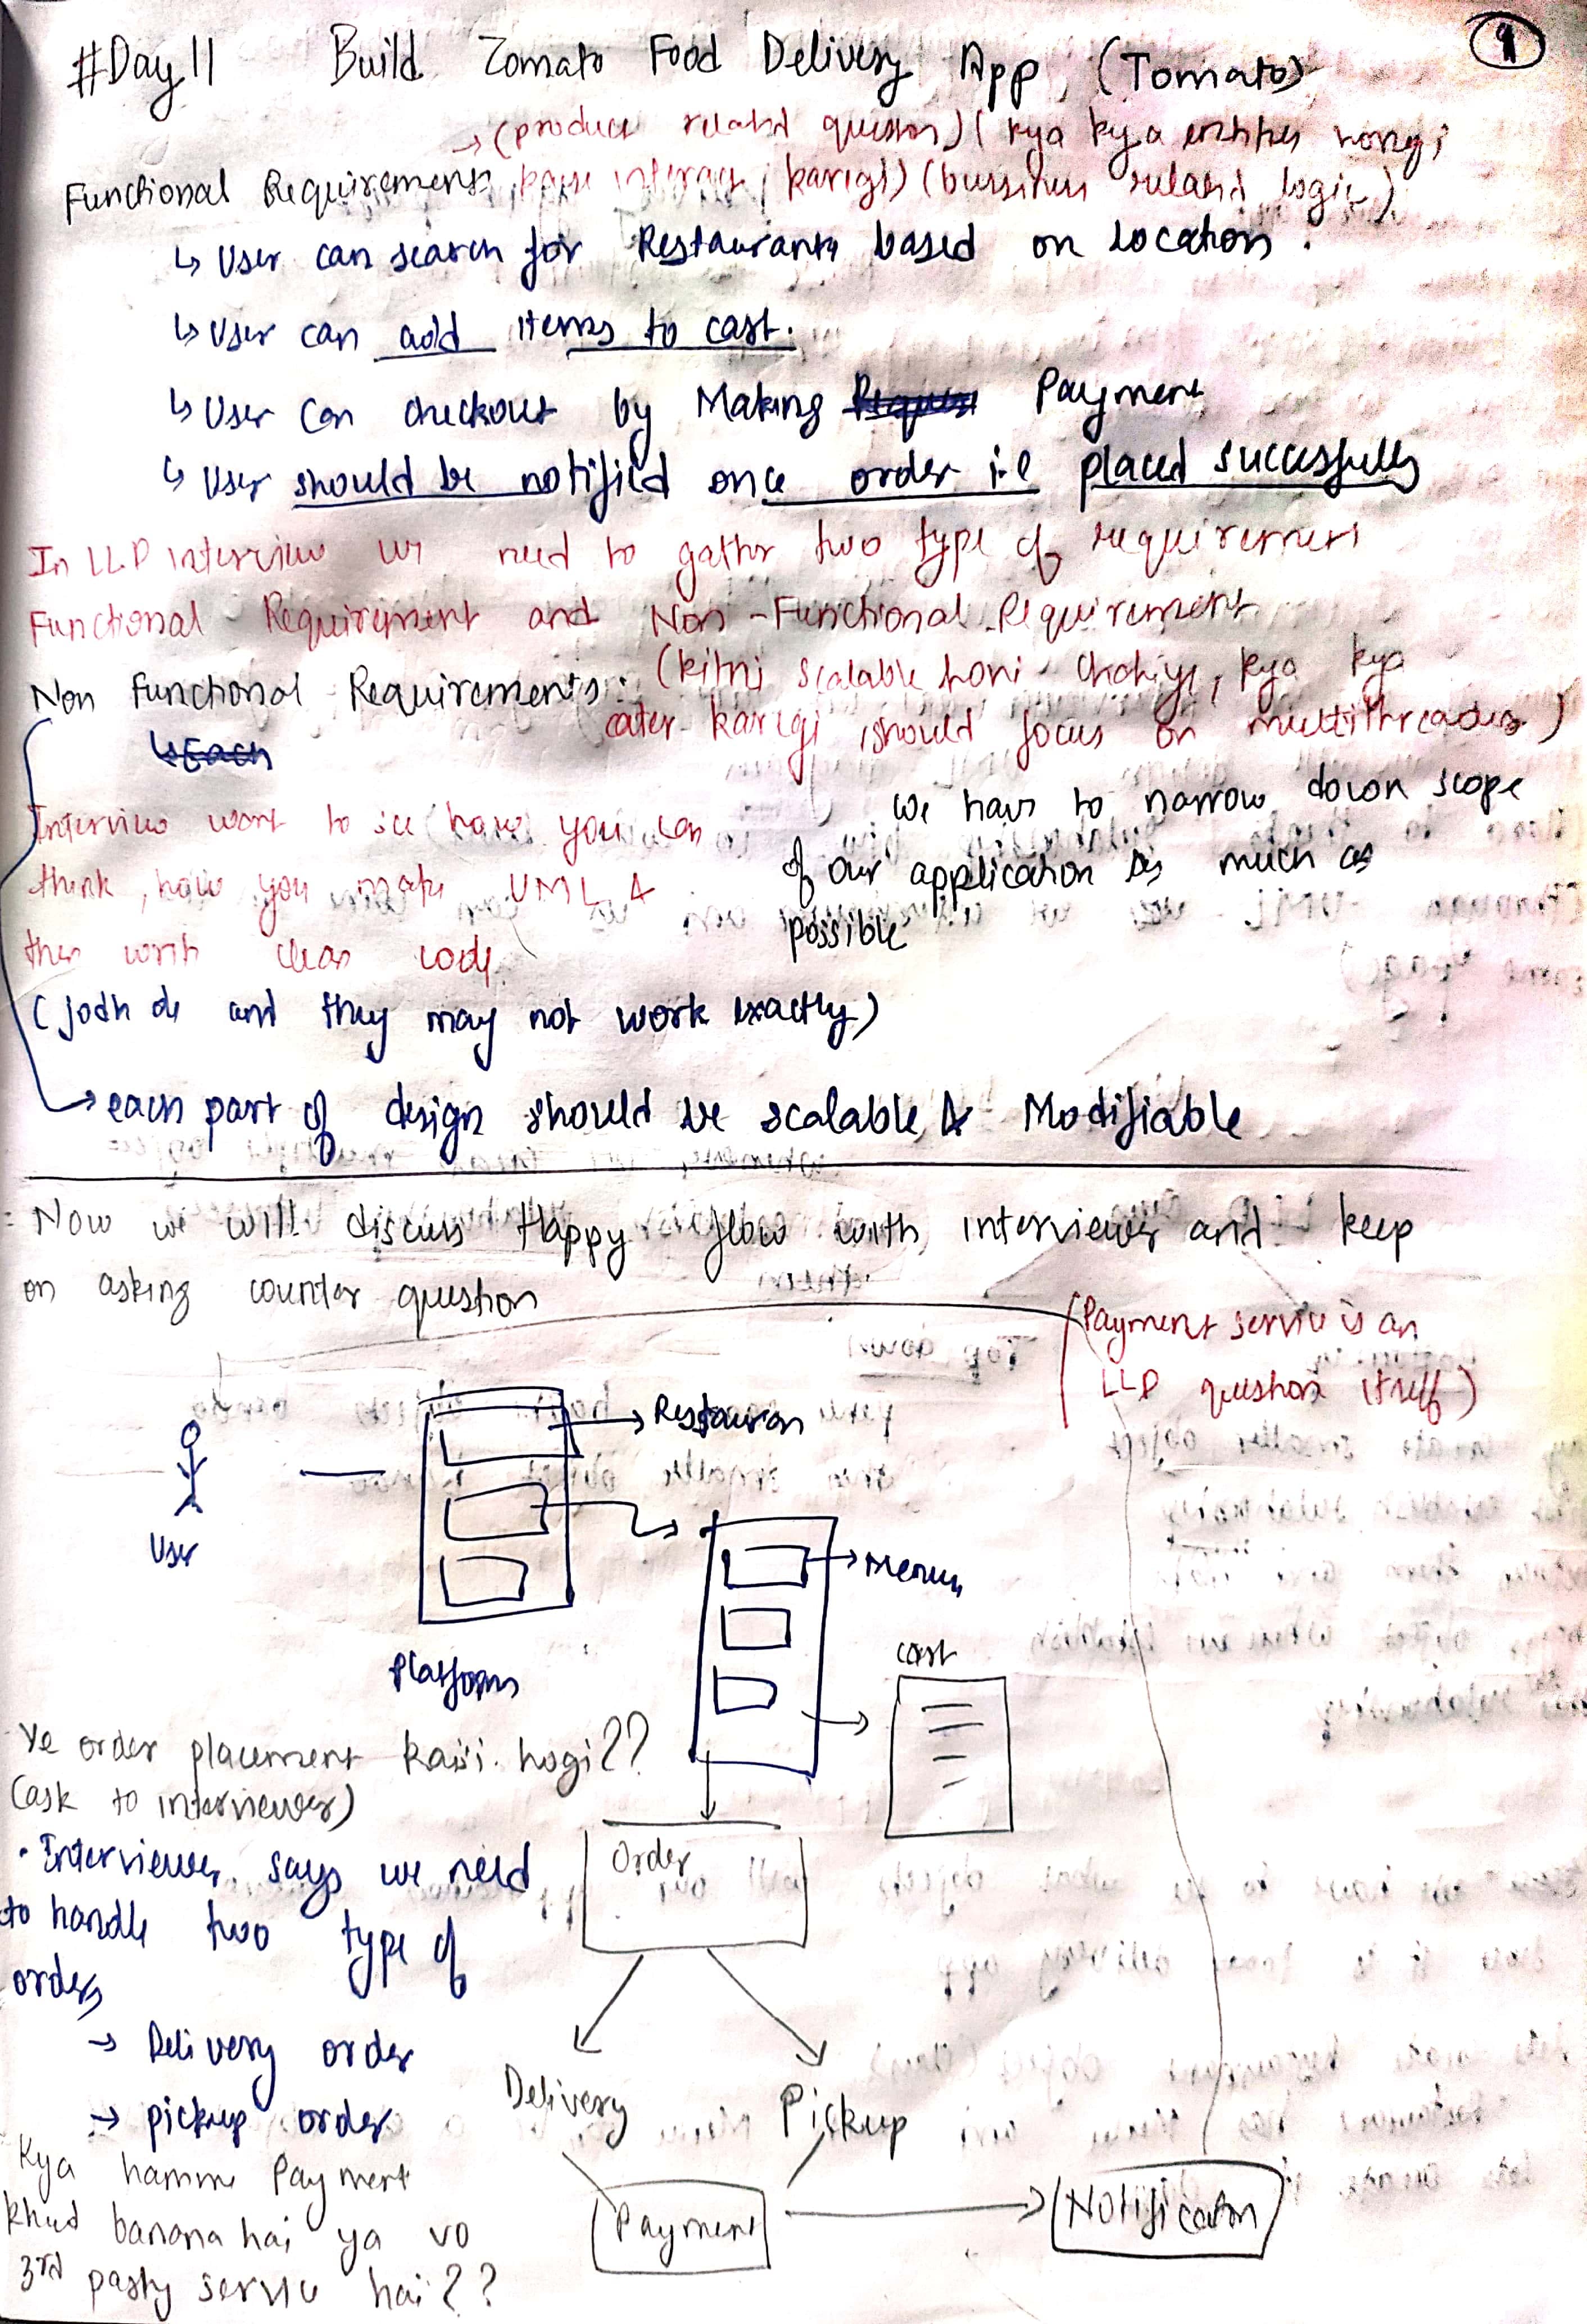 #Day 11 Build Zomato Food Delivery App (Tomato)
1
→ (product related question) ( kya kya entities hongi
Functional Requirements, kaise interact karegi) (bussiness related logic)
↳ User can search for Restaurants based on Location.
↳ User can add items to cart.
↳ User can checkout by Making Payment
↳ User should be notified once order i.e placed successfully
In LLD interview we need to gather two type of requirement
Functional Requirement and Non-Functional Requirement
Non Functional Requirements: (kitni scalable honi chahiye, kya kya
cater karegi, should focus on multithreading)
↳ Each
Interview want to see how you can
think, how you make UML &
then write clean code
we have to narrow down scope
of our application as much as
possible
( and they may not work exactly)
→ each part of design should be scalable & Modifiable
Now we will discuss Happy flow with interviewer and keep
on asking counter question
(Payment service is an
LLD question itself)
→ Restauran
User
→ Menu
Platform
cart
Ye order placement kaisi hogi??
(ask to interviewer)
• Interviewer says we need
to handle two type of
orders
→ Delivery order
→ pickup order
Order
Delivery Pickup
Kya hamme Payment
khud banana hai ya vo
3rd party service hai??
Payment → Notification